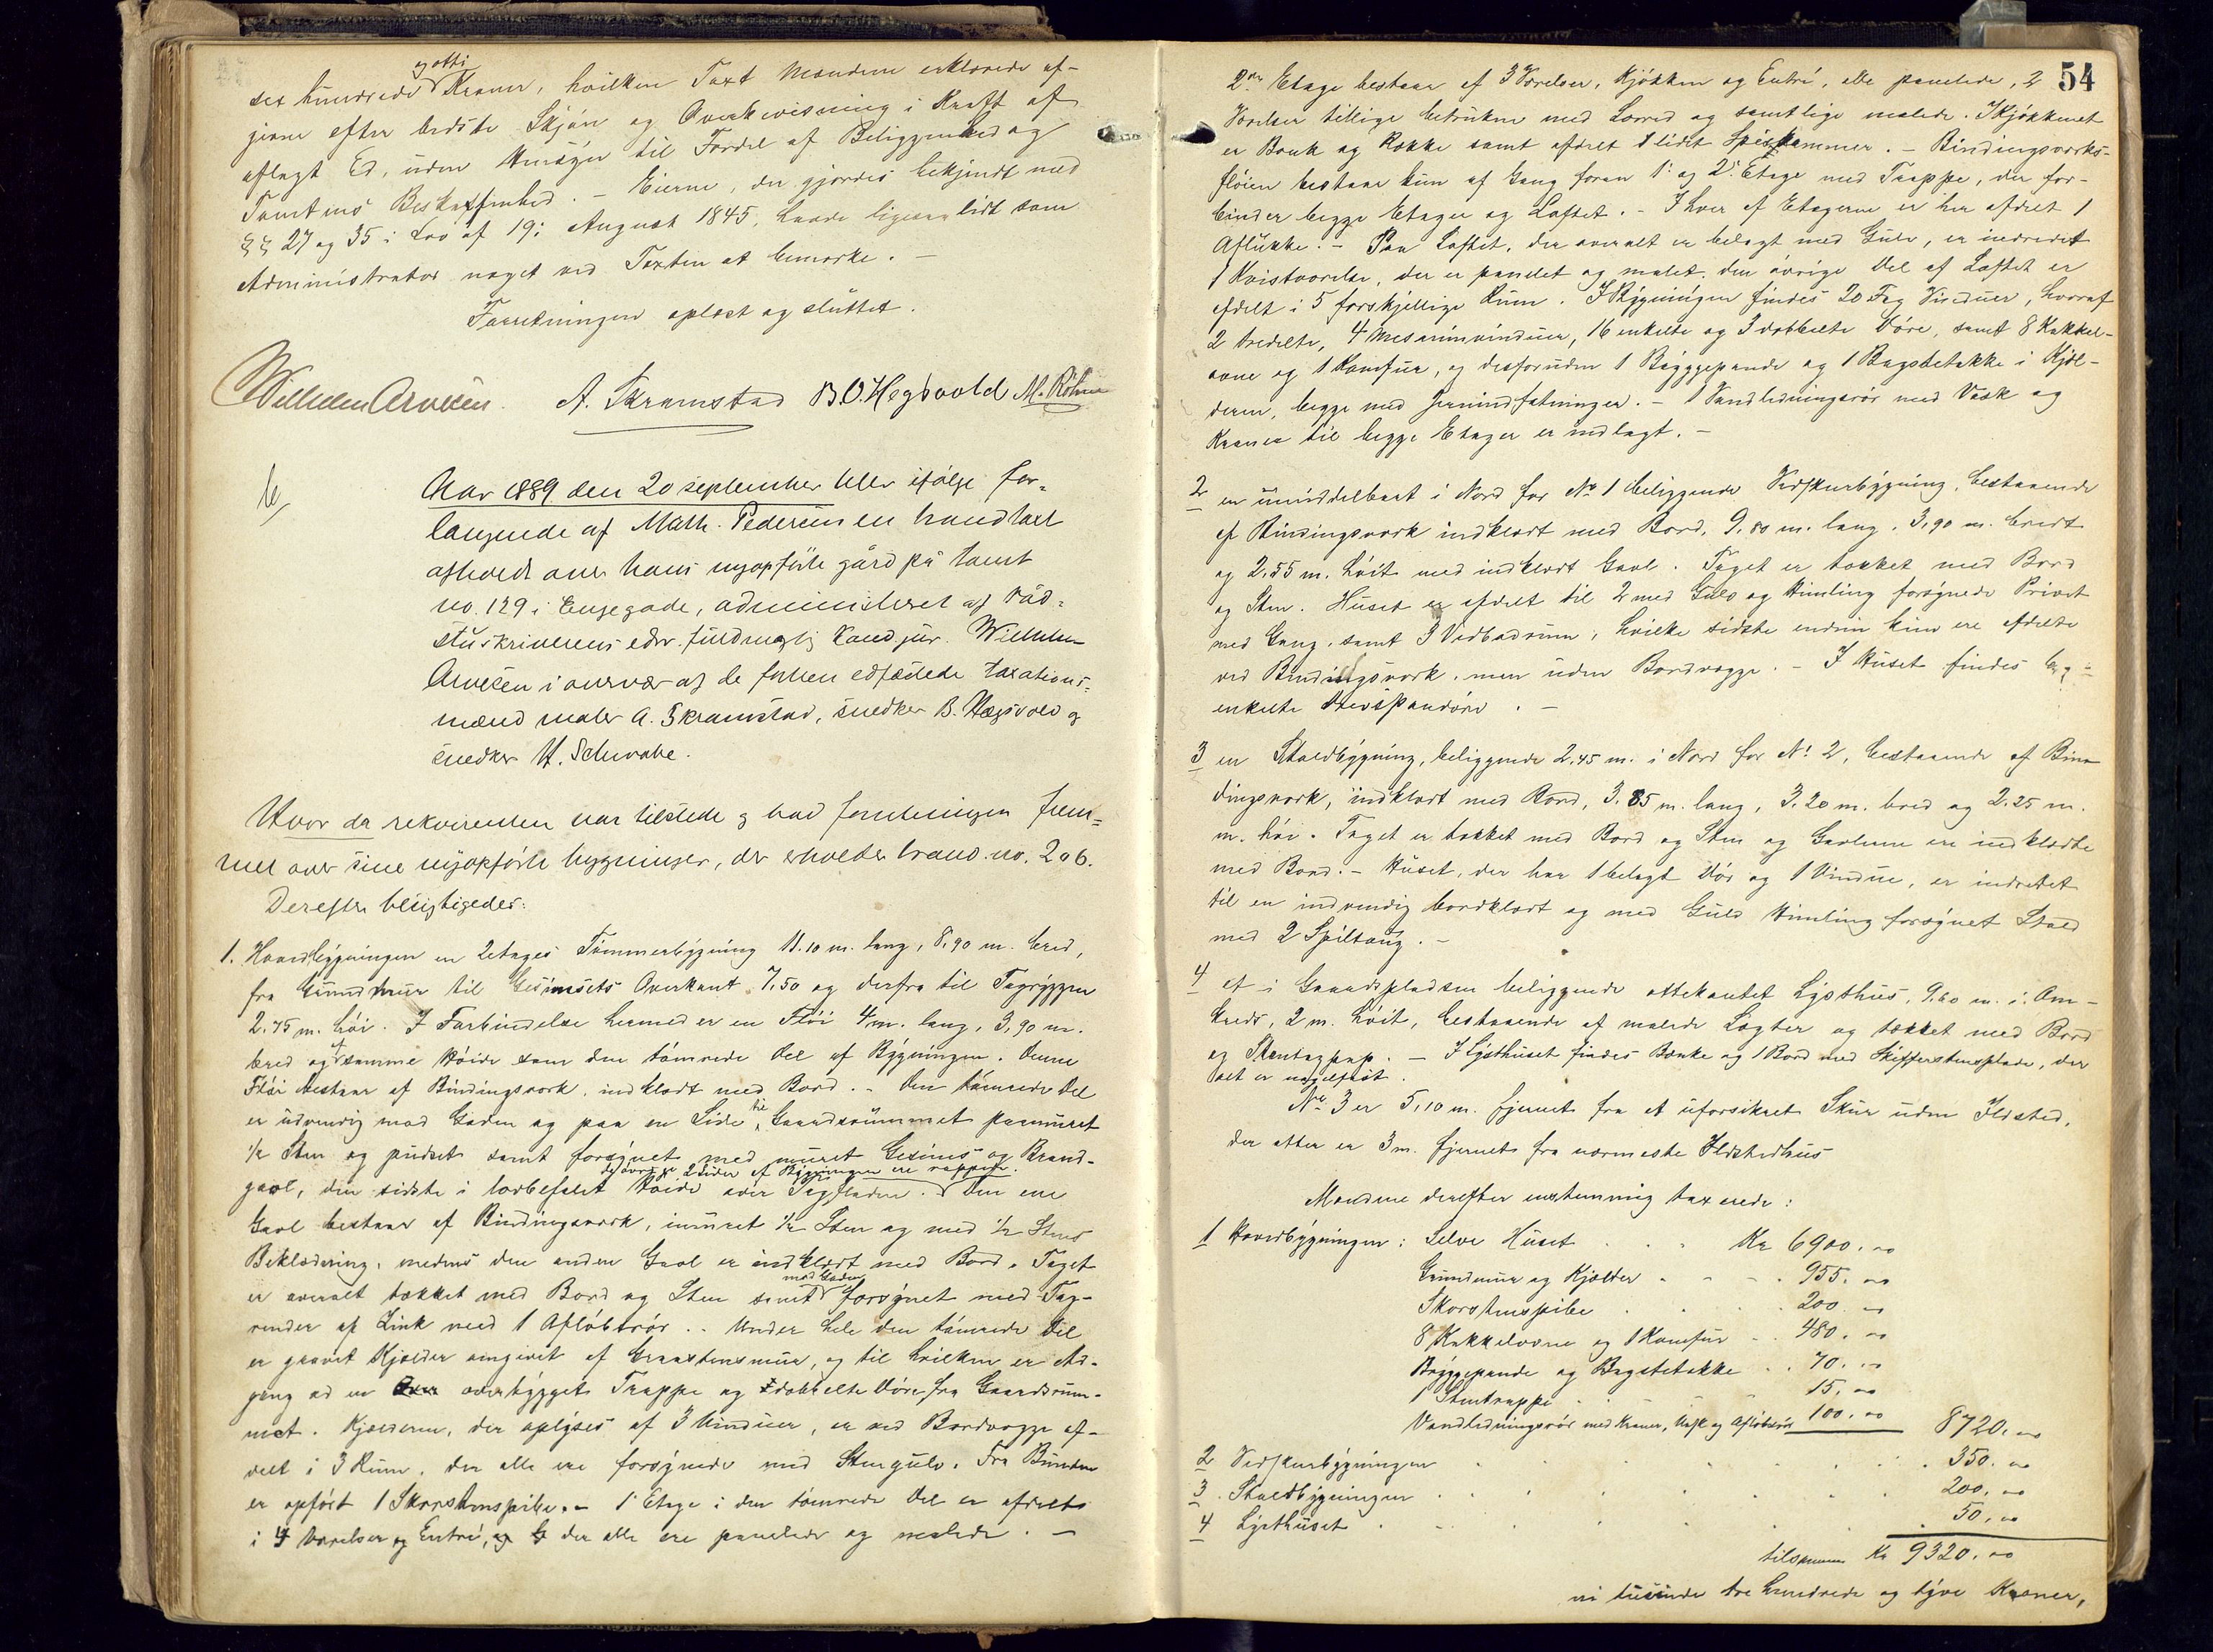 og otti
sex hundrede Kroner, hvilken Taxt Mændene erklærede af-
givne efter bedste Skjøn og Overbevisning i Kraft af
aflagt Ed, uden Hensyn til Fordel af Beliggenhed og
Tomtens Beskaffenhed. – Eieren, der gjordes bekjendt med
§§ 27 og 35 i Lov af 19: August 1845, havde ligesaalidt som
Administrator noget ved Taxten at bemærke. –
Forretningen oplæst og sluttet.
Wilhelm Arvesen. A. Skramstad B.O. Hegsvold M. Röhne
Aar 1889 den 20 september blev ifølge for-
langende af Math. Pedersen en brandtaxt
afholdt over hans nyopførte gård på tomt
no. 129 i Engegade, administreret af råd-
stuskriverens edsv. fuldmægtig Kand. jur. Wilhelm
Arvesen i overvær af de forhen edfæstede taxations-
mænd maler A. Skramstad, snedker B. Hegsvold og
snedker H. Schwabe.
Hvor da rekvirenten var tilstede og bad forretningen frem-
met over sine nyopførte bygninger, der erholder brand. no. 206.
Derefter besigtigedes:
1. Hovedbygningen en 2etages Tømmerbygning 11.10 m. lang, 8,90 m. bred,
fra Grundmur til Gesimsets Overkant 7,50 og derfra til Tagryggen
2.75 m. høi. I Forbindelse hermed er en Fløi 4 m. lang, 3,90 m.
bred og af samme Høide som den tømrede Del af Bygningen. Denne
Fløi bestaar af Bindingsværk, indklædt med Bord. – Den tømrede Del
er udvendig mod Gaden og paa en Side til Gaardsrummet paamuret
1/2 Sten og pudset samt forsynet med muret Gesims og Brand-
de øvrige 2 Sider af Bygningen ere rappede.
gavl, den sidste i lovbefalet Høide over Tagfladen. Den ene
Gavl bestaar af Bindingsværk, inmuret 1/2 Sten og med 1/2 Stens
Beklædning, medens den anden Gavl er indklædt med Bord. Taget
mod Gaden
er overalt tækket med Bord og Sten samt forsynet med Tag-
render af Zink med 1 Afløbsrør. – Under hele den tømrede Del
er gravet Kjælder omgivet af Graastensmur, og til hvilken er Ad-
gang ad en overbygget Trappe og dobbelte Døre fra Gaardsrum-
met. Kjælderen, der oplyses af 3 Vinduer, er ved Bordvægge af-
delt i 3 Rum, der alle ere forsynede med Stengulv. Fra Bunden
er opført 1 Skorstenspibe. – 1' Etage i den tømrede Del er afdelt
i 4 Værelser og Entré, der alle ere panelede og malede. –
54
2den Etage bestaar af 3 Værelser, Kjøkken og Entré, alle panelede, 2
Værelser tillige betrukne med Lærred og samtlige malede. I Kjøkkenet
er Bænk og Række samt afdelt 1 lidet Spiskammer. – Bindingsværks-
fløien bestaar kun af Gang foran 1' og 2' Etage med Trappe, der for-
binder begge Etager og Loftet. – I hver af Etagerne er her afdelt 1
Aflukke. – Paa Loftet, der overalt er belagt med Gulv, er indredet
1 Kvistværelse, der er panelet og malet, den øvrige Del af Loftet er
afdelt i 5 forskjellige Rum. I Bygningen findes 20 Fag Vinduer, hvoraf
2 tredelte, 4 Mesaninvinduer, 16 enkelte og 3 dobbelte Døre, samt 8 Kakkel-
ovne og 1 Komfur, og desforuden 1 Bryggepande og 1 Bagstetakke i Kjæl-
deren, begge med Jernindfatninger. – 1 Vandledningsrør med Vask og
Kraner til begge Etager er indlagt. –
2 en umiddelbart i Nord for No 1 beliggende Vedskurbygning, bestaaende
af Bindingsværk indklædt med Bord, 9,80 m. lang, 3,90 m. bredt
og 2,55 m. høit med indklædt Gavl. Taget er tækket med Bord
og Sten. Huset er afdelt til 2 med Gulv og Himling forsynede Privet
med Gang, samt 3 Vedbodrum, hvilke sidste endnu kun ere afdelte
ved Bindingsværk, men uden Bordvægge. – I Huset findes
enkelte .–
3 en Staldbygning, beliggende 2,45 m. i Nord for No 2, bestaaende af Bin-
dingsværk, indklædt med Bord, 3.85 m. lang, 3.20 m. bred og 2.25 m.
m. høi. Taget er tækket med Bord og Sten og Gavlene ere indklædte
med Bord. – Huset, der har 1 belagt Dør og 1 Vindue, er indredet
til en indvendig bordklædt og med Gulv Himling forsynet Stald
med 2 Spiltaug. –
4 et i Gaardspladsen beliggende ottekantet Lysthus, 9.60 m. i Om-
kreds, 2 m. høit, bestaaende af malede Lægter og tækket med Bord
og Stentagpap. – I Lysthuset findes Bænke og 1 Bord med Skifferstensplade, der
alt er nagelfast.
No 3 er 5,10 m. fjernet fra et uforsikret Skur uden Ildsted,
der atter er 3 m. fjernet fra nærmeste Ildstedhus
Mændene derefter enstemmig taxerede:
1 Hovedbygningen: Selve Huset . . . Kr 6900.00
Grundmur og Kjælder . . . 955.00
Skorstenspibe . . . 200.00
8 Kakkelovne og 1 Komfur . . 480.00
Bryggepande og Bagstetakke . . 70.00
1 Stentrappe . . . 15.00
Vandledningsrør med Kraner, Vask og Afløbsrør 100.00 8720.00
2 Vedskurbygningen . . . 350.00
3. Staldbygningen . . . 200.00
4 Lysthuset . . . 50.00
tilsammen Kr 9320.00
ni tusinde tre hundrede og tyve Kroner,